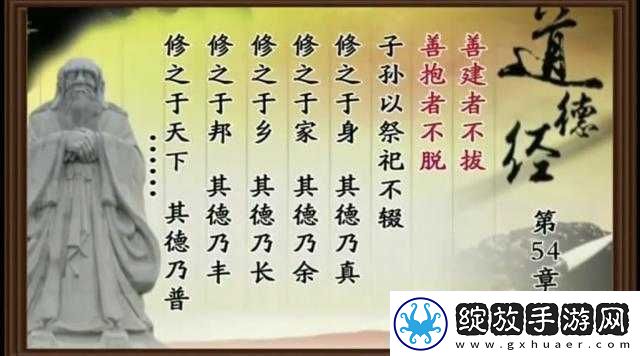 道德经
第54章
善建者不拔
善抱者不脱
子孙以祭祀不辍
修之于身 其德乃真
修之于家 其德乃余
修之于乡 其德乃长
修之于邦 其德乃丰
修之于天下 其德乃普
……
绽放手游网
www.gxhuaer.com